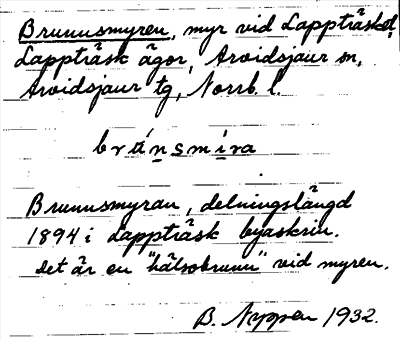 Brunnsmyren, myr vid Lappträsket,
Lappträsk ägor, Arvidsjaur sn,
Arvidsjaur tg, Norrb. l.
brúnsmíra
Brunnsmyran, delningslängd
1894 i Lappträsk byaskrin.
Det är en "hälsobrunn" vid myren.
B. Nyppen 1932.